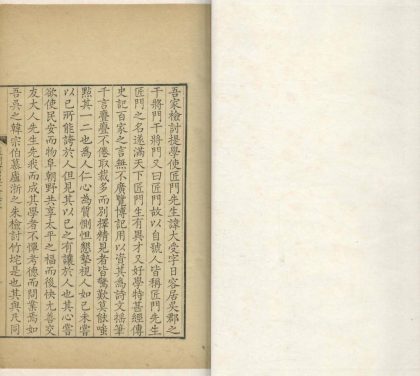 吾家檢討提學使匠門先生諱大受字日容居吳郡之
干將門干將門又曰匠門故以自號人皆稱匠門先生
匠門之名遂滿天下匠門生有異才又好學特甚經傳
史記百家之言無不廣覽博記用以資其為詩文檑筆
千言亹亹不倦取裁多而別擇精見者皆驚歎莫能嗤
點其一二也為人仁心為質惻怛懇摯視人如己未嘗
以己所能誇於人但見其以己之有讓於人也其心嘗
欲使民安而物阜朝野共享太平之福而後快尤善交
友大人先生先我而成其學者不憚考德而問業焉如
吾吳之韓宗伯慕廬浙之朱檢討竹垞是也其與及同